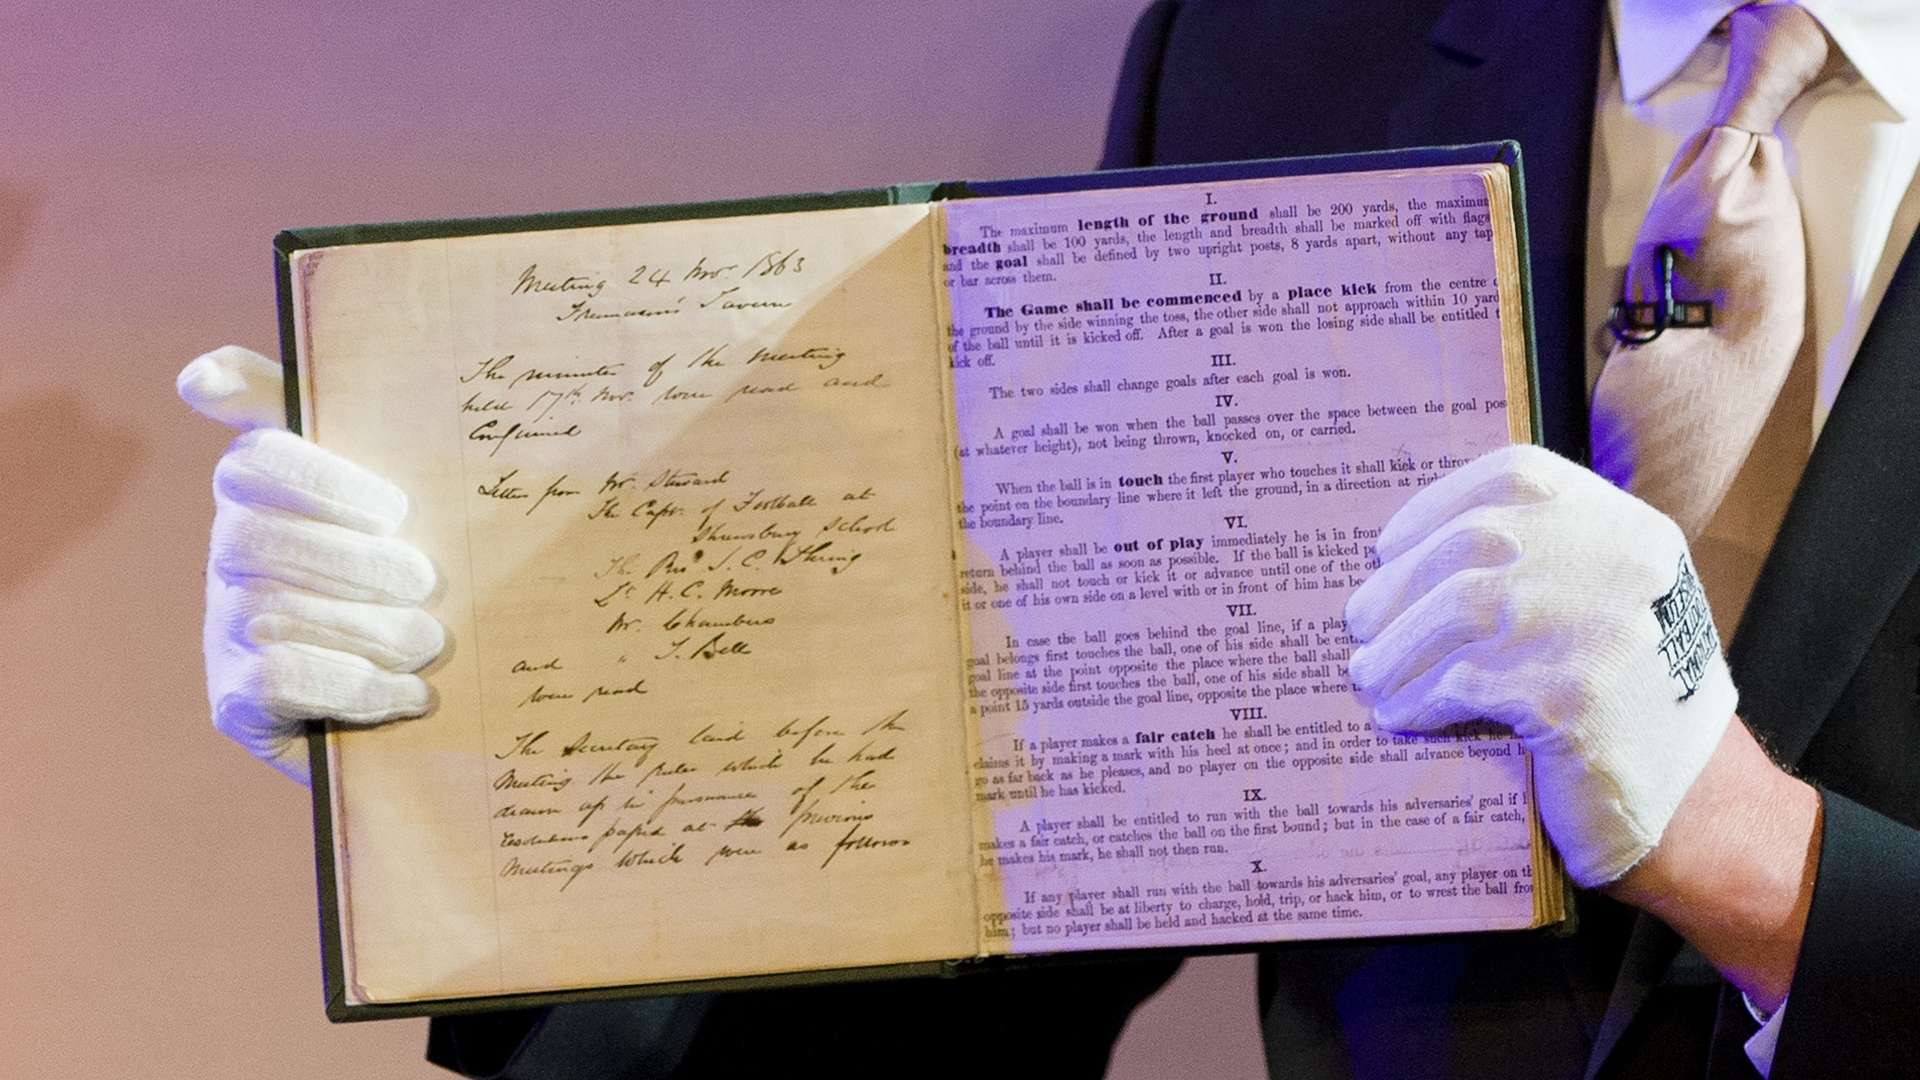 Meeting 24 Nov. 1863
Freemason's Tavern
The minutes of the meeting
held 17th. Nov. were read and
Confirmed
Letters from Mr. Steward
The Capt. of Football at
Shrewsbury School
The Revd J. C. Thring
Lt H. C. Moore
Mr. Chambers
and " J. Bell
were read
The Secretary laid before the
Meeting the rules which he had
drawn up in pursuance of the
resolutions passed at the previous
Meetings which were as follows
I.
The maximum length of the ground shall be 200 yards, the maximum
breadth shall be 100 yards, the length and breadth shall be marked off with flags
and the goal shall be defined by two upright posts, 8 yards apart, without any tap
or bar across them.
II.
The Game shall be commenced by a place kick from the centre
the ground by the side winning the toss, the other side shall not approach within 10 yard
of the ball until it is kicked off. After a goal is won the losing side shall be entitled t
kick off.
III.
The two sides shall change goals after each goal is won.
IV.
A goal shall be won when the ball passes over the space between the goal pos
(at whatever height), not being thrown, knocked on, or carried.
V.
When the ball is in touch the first player who touches it shall kick or throw
the point on the boundary line where it left the ground, in a direction at rig
the boundary line.
VI.
A player shall be out of play immediately he is in front
return behind the ball as soon as possible. If the ball is kicked p
side, he shall not touch or kick it or advance until one of the ot
it or one of his own side on a level with or in front of him has be
VII.
In case the ball goes behind the goal line, if a play
goal belongs first touches the ball, one of his side shall be enti
goal line at the point opposite the place where the ball shall
the opposite side first touches the ball, one of his side shall be
a point 15 yards outside the goal line, opposite the place where
VIII.
If a player makes a fair catch he shall be entitled to a
claims it by making a mark with his heel at once; and in order to take such kick he
go as far back as he pleases, and no player on the opposite side shall advance beyond h
mark until he has kicked.
IX.
A player shall be entitled to run with the ball towards his adversaries' goal if
makes a fair catch, or catches the ball on the first bound; but in the case of a fair catch,
he makes his mark, he shall not then run.
X.
If any player shall run with the ball towards his adversaries' goal, any player on th
opposite side shall be at liberty to charge, hold, trip, or hack him, or to wrest the ball from
him; but no player shall be held and hacked at the same time.
NATIONAL
FOOTBALL
MUSEUM